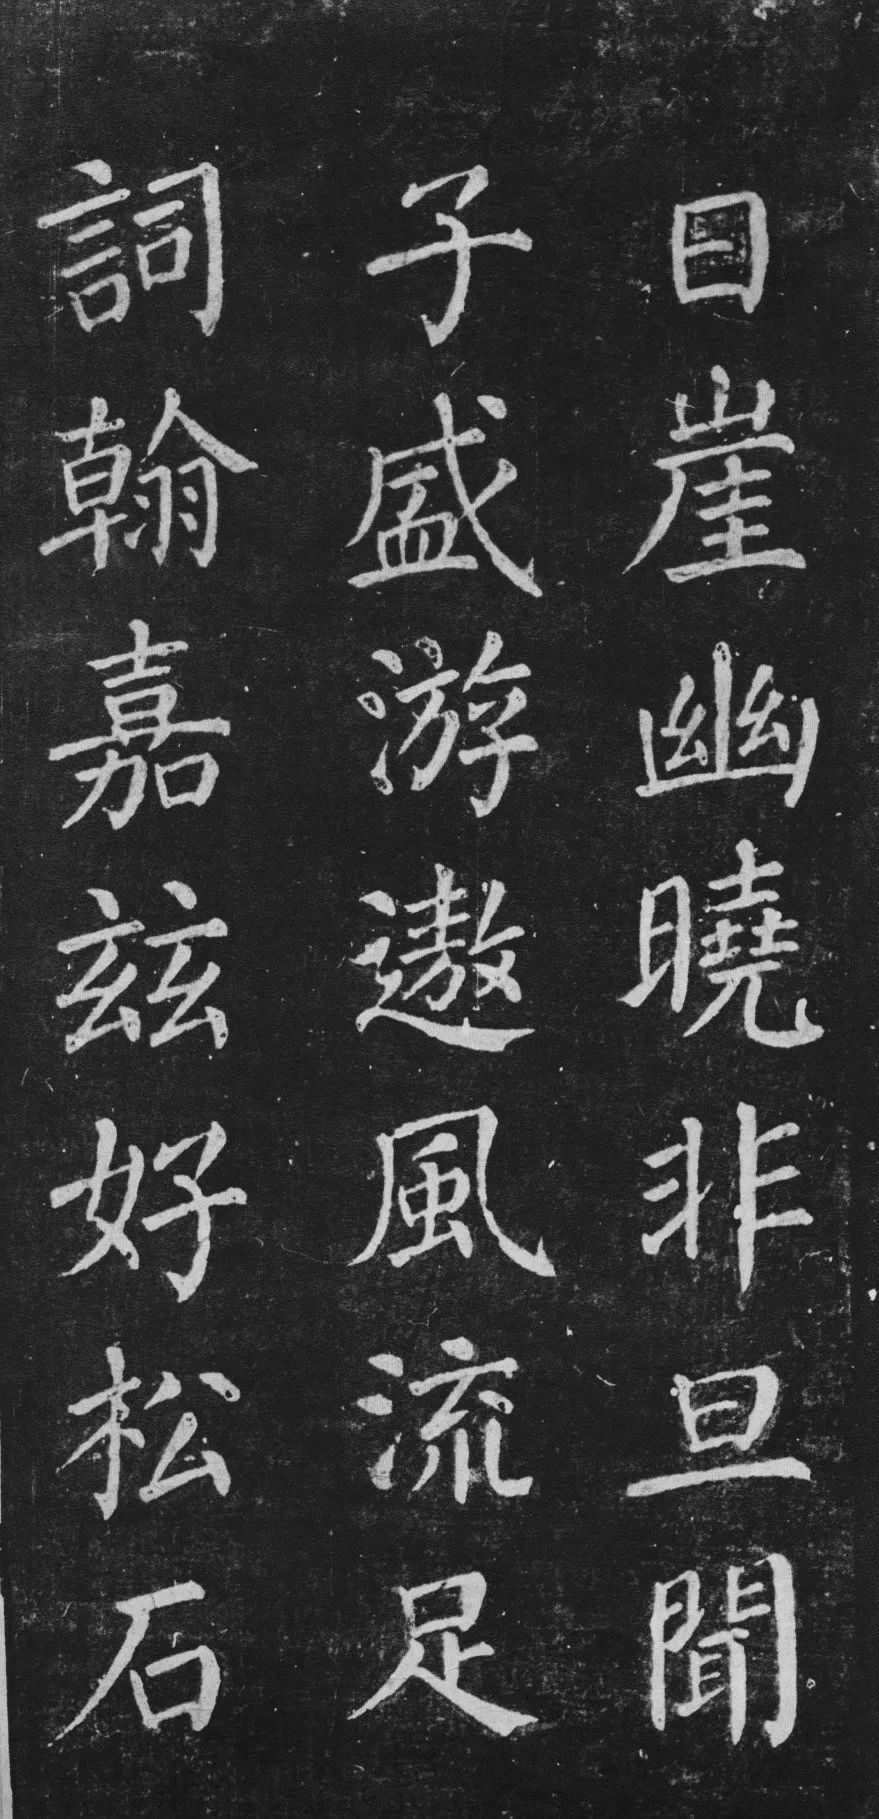 日崖幽曉非旦聞
子盛游遨風流足
詞翰嘉玆好松石